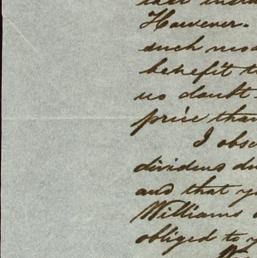 However.
such
benefit t
no doubt
price than
I obse
dividend du
and that y
Williams
obliged to y